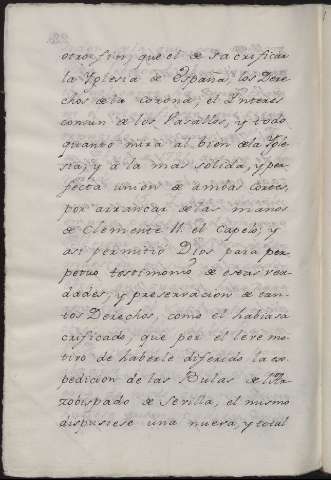 otro fin, que el de sacrificar
la Yglesia de España, los Dere
chos de la Corona, el Interes
comun de los Vasallos, y todo
quanto mira al bien de la Ygle
sia, y â la mas sólida, y per
fecta union de ambas Cortes,
por arrancar de las manos
de Clemente 11. el Capelo; y
asi permitió Dios para per
petuo testimonio de estas ver
dades, y preservacion de tan
tos Derechos, como el habia sa
crificado, que por el leve mo
tivo de haberle diferido la ex
pedicion de las Bulas de el Ar
zobispado de Sevilla, el mismo
dispusiese una nueva, y total